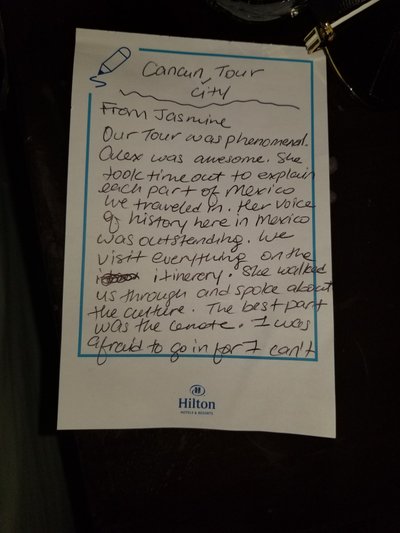 Cancun, Tour
City
From Jasmine
Our Tour was phenomenal.
Alex was awesome. She
took time out to explain
each part of Mexico
we traveled in. Her voice
of history here in Mexico
was outstanding. We
visit everything on the
itinerery. She walked
us through and spoke about
the culture. The best part
was the cenote. I was
afraid to go in for I can't
Hilton
HOTELS & RESORTS